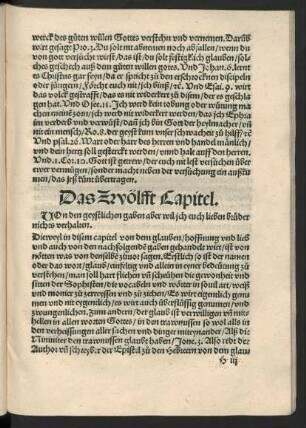 werck des güten willen Gottes verstehn vnd vernemen. Darüb
wirt gesagt Pro. 3. Du solt nit abnemen noch abfallen / wenn du
von got versücht wirst / das ist / du solt festigklich glauben / sol-
ches geschech auß dem güten willen gottes. Vnd Johan. 6. lernt
Christus gar seyn / da er spricht zu den erschrocknen discipeln
oder jüngern / Förcht euch nit / ich bins / ꝛc. Vnd Esai. 9. wirt
das volck gestrafft / das es nit widerkert zu disem / der es geschla-
gen hat. Vnd Osee. 11. Jch werd kein tobung oder wütung ma-
chen meins zorn / ich wird nit widerkert werden / das ich Ephra-
im verderb vnd verwüst / dañ ich bin Gott der heylmacher / vñ
nit ein mensch / Ro. 8. der geyst kum vnser schwacheit zu hilff / ꝛc
Vnd psal. 26. Wart oder harr des herren vnd handel mänlich /
vnd dein hertz soll gesterckt werden / vnnd halt auff den herren.
Vnd 1. Cor. 10. Gott ist getrew / der euch nit lest versüchen über
ewer vermögen / sunder machet neben der versüchung ein außkum-
men / das jrs künt übertragen.
Das Zwölfft Capitel.
Von den geystlichen gaben aber wil ich euch lieben brüder
nichts verhalten.
Dieweyl in disem capitel von dem glauben / hoffnung vnd lieb
vnd auch von den nachfolgenden gaben gehandelt wirt / ist von
nötten was von denselben zuuor sagen. Erstlich / so ist der namen
oder das wort / glaub / einfeltig vnd allein in eyner bedeutung zu
verstehen / man soll hart fliehen vñ schühen die gewonheit vnd
sitten der Sophisten / die vocabeln vnd wörter in souil art / weiß
vnd meinung zu zerreissen vnd zu ziehen / Es wirt eigenlich genum-
men vnd nit eygenlich / es wirt auch überflüssig genumen / vnd
zwungenlich. Zum andern / der glaub ist verwilligen vñ mit-
hellen in allen worten Gottes / in den trawnussen so wol als in
den verheissungen aller sachen vnd dinger miteynander. Als die
Niniuiter den trawnussen glaubt haben / Jone. 3. Also redt der
Author vñ schreyber der Epistel zü den Hebreern von dem glau-
H iij